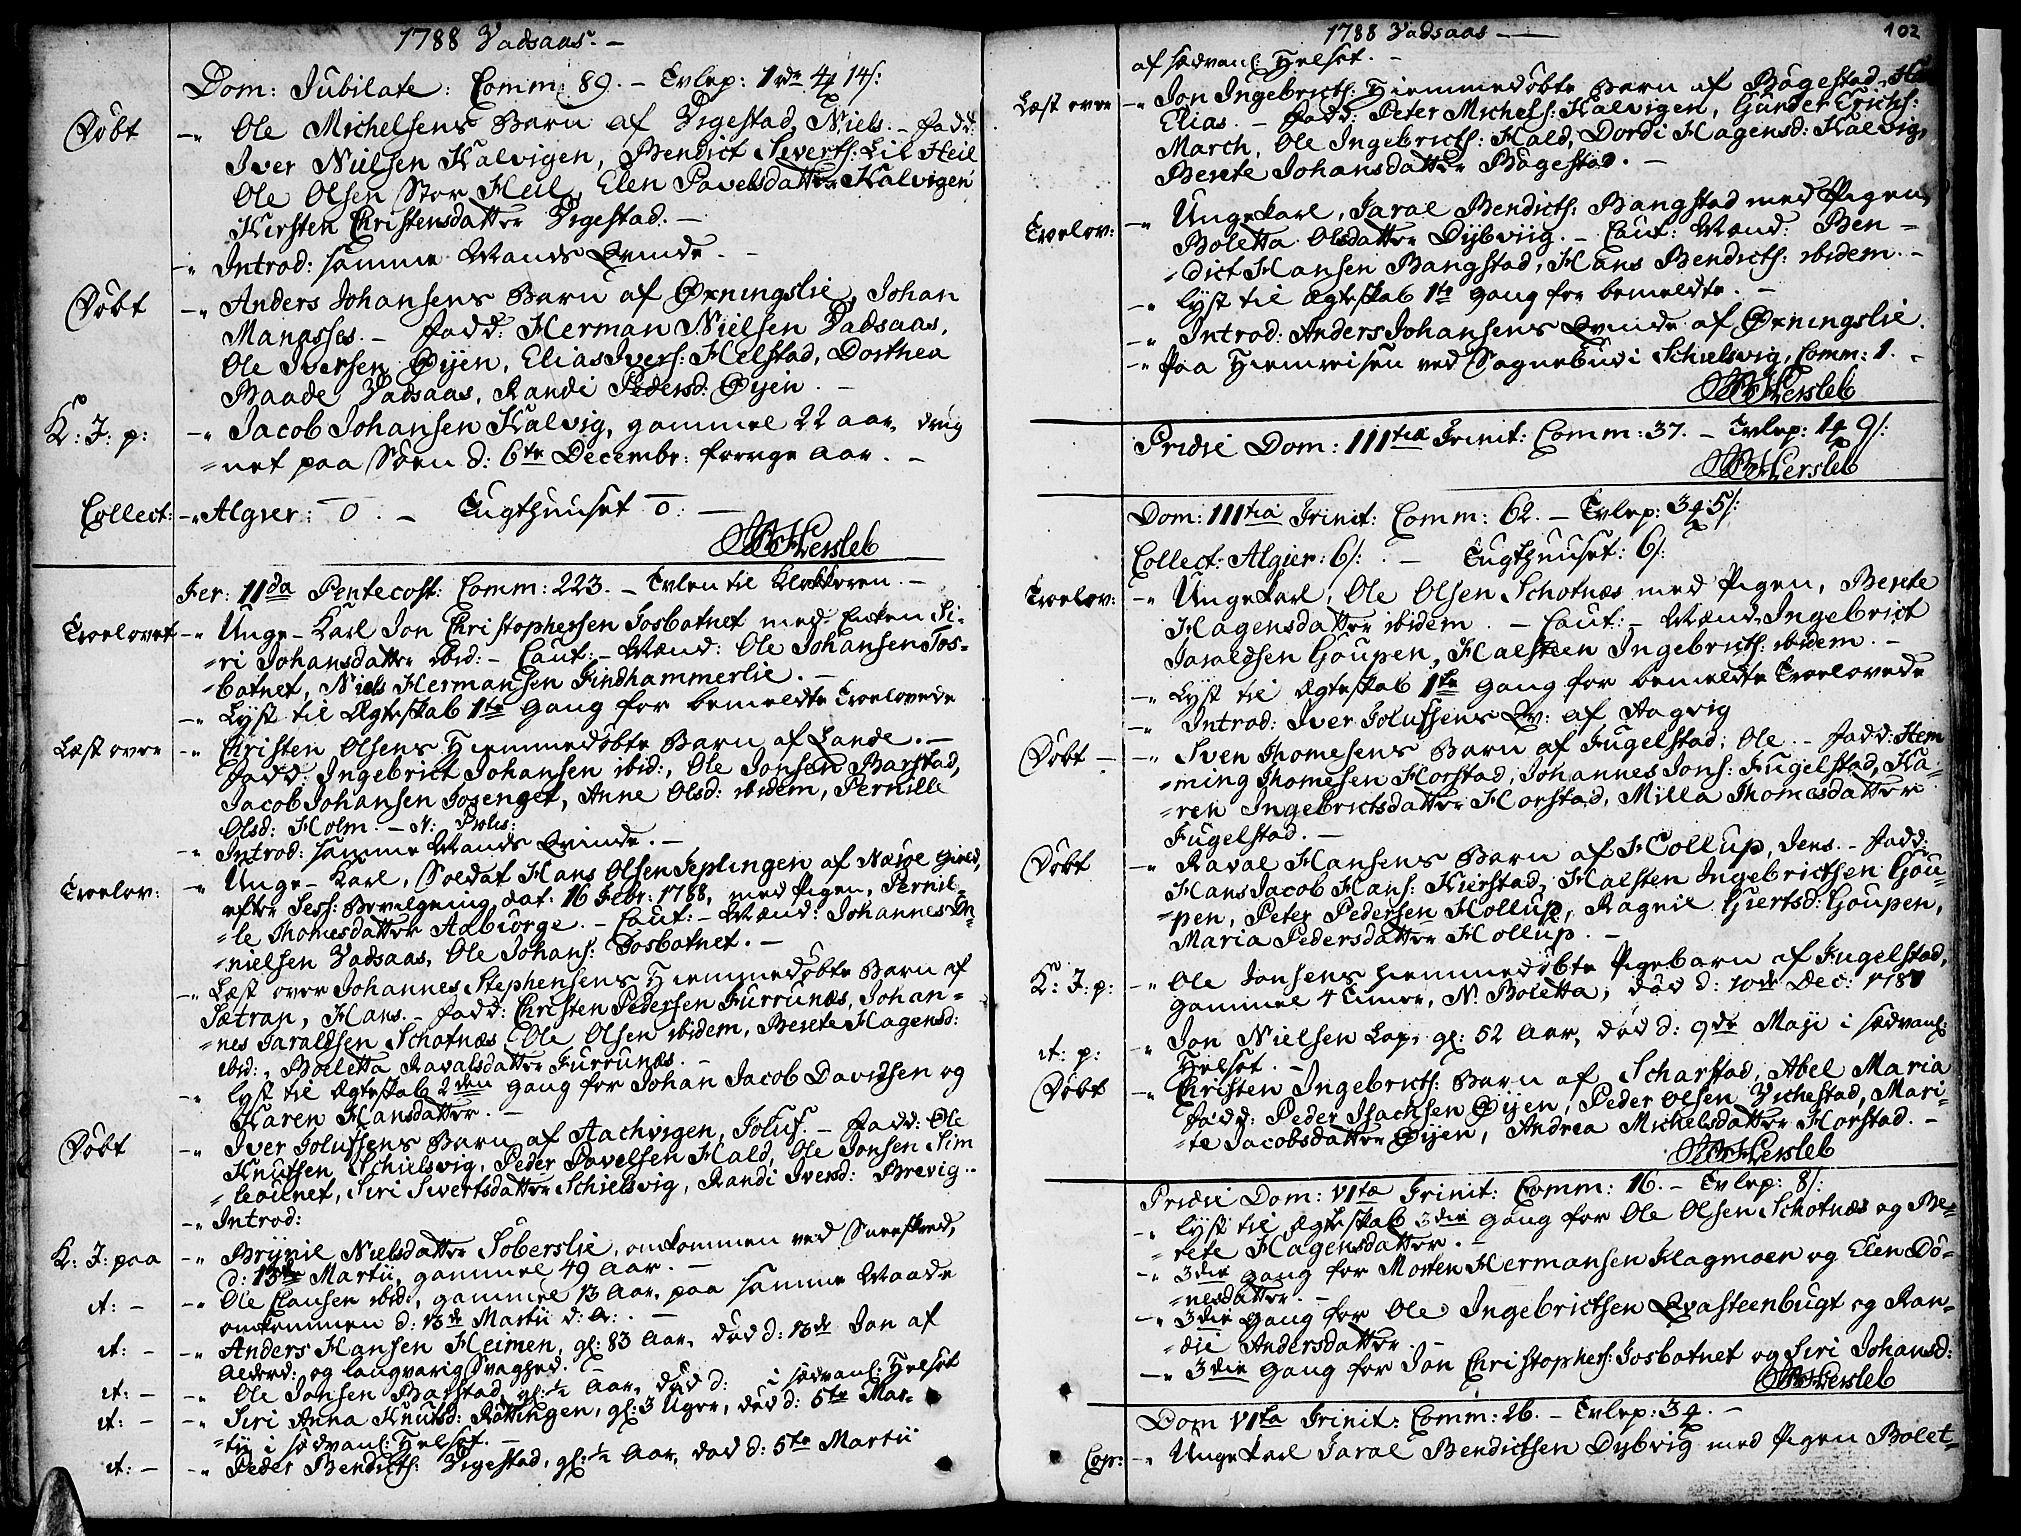 1788 Vadsaas. –
Dom: Jubilate: Comm: 89. – Tvlep: 1 rdr 4 ꝣ 14 s:
Döbt –" Ole Michelsens Barn af Digestad, Niels. – Fadd:
Iver Nielsen Kalvigen, Bendict Siverts: Lil Heil
Ole Olsen Stor Heil, Elen Pavelsdatter Kalvigen
Kirsten Christensdatter Digestad. –
–" Introd: samme Mands Qvinde. –
Döbt –" Anders Johansens Barn af Ørningslie, Johan
Manasses. – Fadd: Herman Nielsen Vadsaas,
Ole Iversen Øyen, Elias Ivers: Helstad, Dorthea
Baade Vadsaas, Randi Pedersd: Øyen. –
K: J: p: –" Jacob Johansen Kalvig, gammel 22 aar, drug
=net paa Söen d: 6te Decembr: forrige Aar. –
Collect: –" Algier: 0. – Tugthuuset 0. –
Hersleb
Fer: IIda Pentecost: Comm: 223. – Tvlen til Klokkeren. –
Troelovet –" Unge-Karl Jon Christophersen Tosbotnet med Enken Si-
=ri Johansdatter ibid: – Caut: – Mænd: Ole Johansen Tos-
=botnet, Niels Hermansen Findhammerlie. –
–" Lyst til Ægteskab 1te Gang for bemeldte Troelovede
Læst over –" Christen Olsens Hiemmedöbte Barn af Lande. –
Fadd: Ingebrict Johansen ibid:, Ole Jonsen Barstad,
Jacob Johansen Josenget, Anne Olsd: ibidem, Pernille
Olsd: Holm. – N:
–" Introd: samme Mands Qvinde. –
Troelov: –" Unge-Karl, Soldat Hans Olsen Teplingen af Næröe Gield,
efter Sess: Bevilgning dat: 16 Febr: 1788, med Pigen, Pernil-
=le Thomesdatter Aabiörge. – Caut: – Mænd: Johannes En-
=nielsen Vadsaas, Ole Johans: Tosbotnet. –
–" Læst over Johannes Stephensens Hiemmedöbte Barn af
Sætran, Hans. – Fadd: Christen Pedersen Furrunæs, Johan=
=nes Jaraldsen Schotnæs, Ole Olsen ibidem, Berete Hagensd:
ibid:, Boeletta Ravalsdatter Furrunæs. –
–" lyst til Ægteskab 2den Gang for Johan Jacob Davidsen og
Karen Hansdatter. –
Döbt –" Iver Tolufsens Barn af Aachvigen, Toluf. – Fadd: Ole
Knutsen Schielsvig, Peder Povelsen Hald, Ole Jonsen Sim
=leöenet, Siri Sivertsdatter Schielsvig, Randi Iversd: Brevig. –
–" Introd:
K: J: paa –" Brynie Nielsdatter Toberslie, omkommen ved Sneeskred,
d: 13de Martii, gammel 49 Aar. –
it: – –" Ole Clausen ibid:, gammel 13 Aar, paa samme Maade
omkommen d: 13de Martii d: A: . –
it: – –" Anders Hansen Heimen, gl: 83 Aar, död d: 13de Jan af
Alderd: og langvarig Svaghed. –
it: – –" Ole Jonsen Barstad, gl: ½ Aar, död d: i sædvanl: Helset
it: – –" Siri Anna Knutsd: Röttingen, gl: 3 Uger, död d: 5te Mar-
=tii i sædvanl: Helset. –
it: – –" Peder Bendicts: Digestad, gl: ½ Aar, död d: 5te Martii
1788 Vadsaas –
102
af sædvanl: Helset. –
Læst over –" Jon Ingebricts: Hiemmedöbte Barn af Bögestad,
Elias. – Fadd: Peter Michels: Kalvigen, Gunder Erichs:
March, Ole Ingebricts: Hald, Dordi Hagensd: Kalvig,
Berete Johansdatter Bögestad. –
Troelov: –" Unge Karl, Jaral Bendicts: Bangstad med Pigen,
Boletta Olsdatter Dybviig. – Caut: Mænd: Ben-
=dict Hansen Bangstad, Hans Bendicts: ibidem. –
–" lyst til Ægteskab 1te Gang for bemeldte. –
–" Introd: Anders Johansens Qvinde af Ørningslie.
–" Paa Hiemreisen ved Sognebud i Schielsvig, Comm: 1. –
Hersleb
Pridie Dom: IIItiæ Trinit: Comm: 37. – Tvlep: 1 ꝣ 9 s:
Hersleb
Dom: IIItia Trinit: Comm: 62. – Tvlep: 3 ꝣ 5 s:
Collect: Algier: 6 s: . – Tugthuuset: 6 s:
Troelov: –" Unge Karl, Ole Olsen Schotnæs med Pigen, Berete
Hagensdatter ibidem. – Caut: – Mænd, Ingebrict
Jaraldsen Goupen, Halsteen Ingebricts: ibidem. –
–" Lyst til Ægteskab 1te Gang for bemeldte Troelovede
–" Introd: Iver Tolufsens Qv: af Aagvig
Döbt – –" Sven Thomesens Barn af Fugelstad, Ole. – Fadd: Hem
=ming Thomesen Horstad, Johannes Jons: Fugelstad, Ka-
=ren Ingebrictsdatter Horstad, Milla Thomesdatter
Fugelstad. –
Döbt –" Raval Hansens Barn af Hollup, Jens. – Fadd:
Hans Jacob Hans: Kierstad, Halsten Ingebrictsen Gou-
=pen, Peter Pedersen Hollup, Ragnil Giertsd: Goupen,
Maria Pedersdatter Hollup. –
K: J: p: –" Ole Jonsens hiemmedöbte Pigebarn af Fugelstad,
gammel 4 Timer, N. Boletta, död d: 10de Dec: 1787
it: p: –" Jon Nielsen Lap, gl: 52 Aar, död d: 9de Maji i sædvanl:
Helset. –
Döbt –" Christen Ingebricts: Barn af Scharstad, Abel Maria
Fadd: Peder Isachsen Øyen, Peder Olsen Vichestad, Mari-
=te Jacobsdatter Øyen, Andrea Michelsdatter Horstad. –
Hersleb
Pridie Dom: VItæ Trinit: Comm: 16. – Tvlep: 8 s:
–" lyst til Ægteskab 3die Gang for Ole Olsen Schotnæs og Be-
=rete Hagensdatter. –
–" 3die Gang for Morten Hermansen Flagmoen og Elen Dö-
=nesdatter. –
–" 3die Gang for Ole Ingebrictsen Qvasteenbugt og Ran-
=die Andersdatter. –
–" 3die Gang for Jon Christophers: Tosbotnet og Siri Johansd:
Hersleb
Dom VIta Trinit: Comm: 26. – Tvlep: 3 ꝣ. –
Cop: –" Unge Karl Jaral Bendictsen Dybvig med Pigen Bolet-